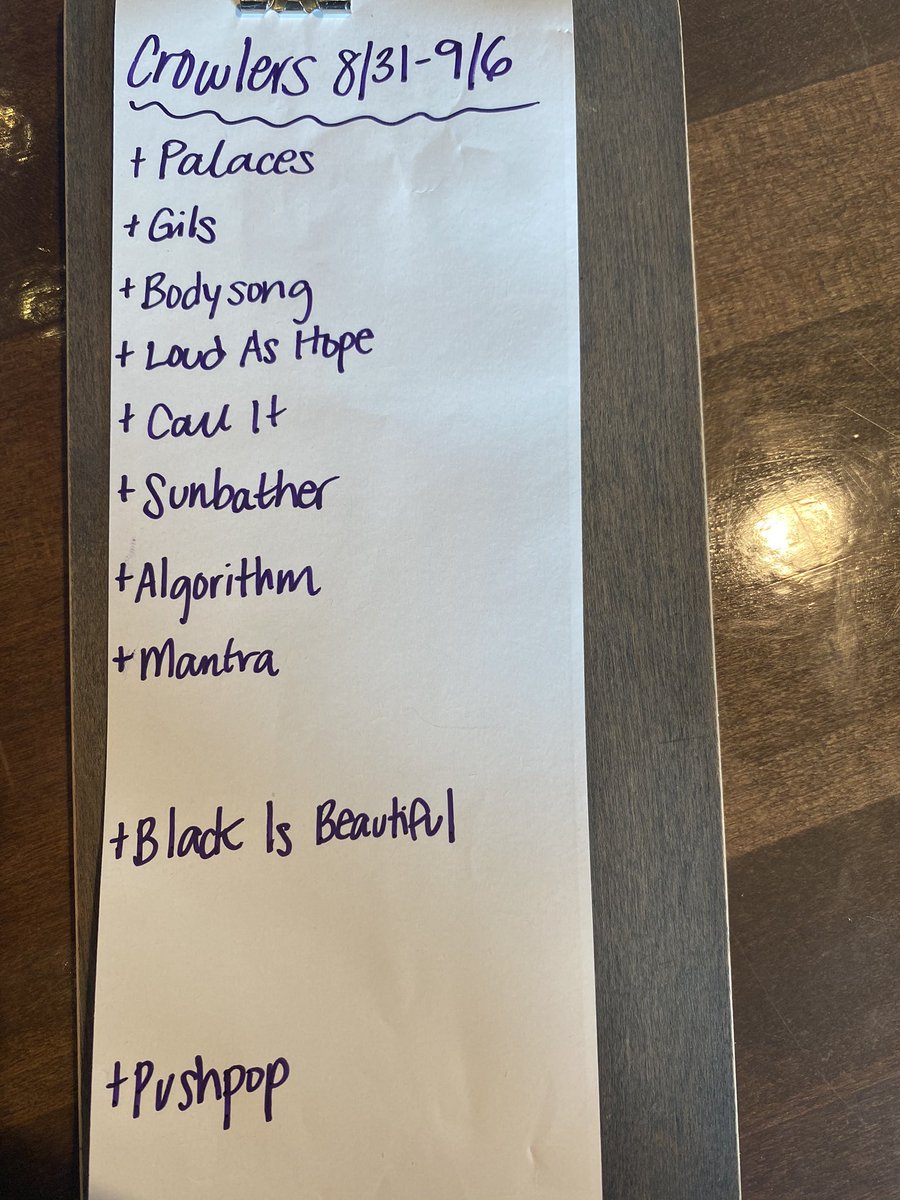 Crowlers 8/31-9/6
+ Palaces
+ Gils
+ Bodysong
+ Loud As Hope
+ Call It
+ Sunbather
+ Algorithm
+ Mantra
+ Black Is Beautiful
+ Pushpop